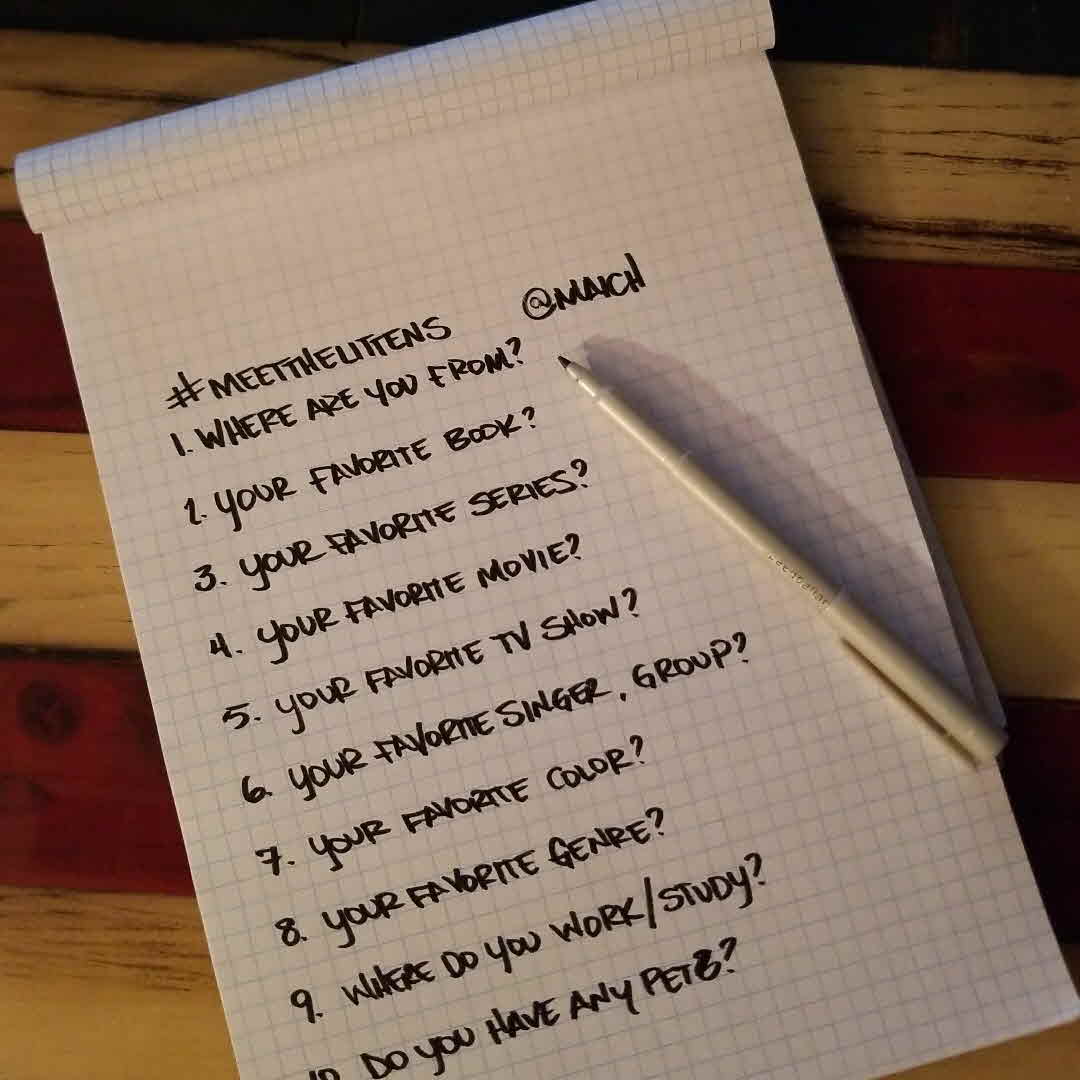 #MEETTHELITTENS @MAICH
1. WHERE ARE YOU FROM?
2. YOUR FAVORITE BOOK?
3. YOUR FAVORITE SERIES?
4. YOUR FAVORITE MOVIE?
5. YOUR FAVORITE TV SHOW?
6. YOUR FAVORITE SINGER, GROUP?
7. YOUR FAVORITE COLOR?
8. YOUR FAVORITE GENRE?
9. WHERE DO YOU WORK/STUDY?
10. DO YOU HAVE ANY PETS?